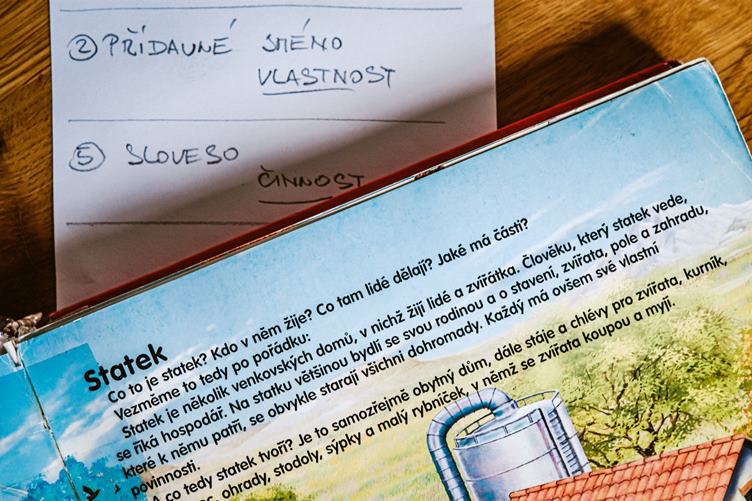 ② PŘÍDAVNÉ JMÉNO
VLASTNOST
⑤ SLOVESO
ČINNOST
Statek
Co to je statek? Kdo v něm žije? Co tam lidé dělají? Jaké má části?
Vezměme to tedy po pořádku:
Statek je několik venkovských domů, v nichž žijí lidé a zvířátka. Člověku, který statek vede,
se říká hospodář. Na statku většinou bydlí se svou rodinou a o stavení, zvířata, pole a zahradu,
které k němu patří, se obvykle starají všichni dohromady. Každý má ovšem své vlastní
povinnosti.
A co tedy statek tvoří? Je to samozřejmě obytný dům, dále stáje a chlévy pro zvířata, kurník,
ohrady, stodoly, sýpky a malý rybníček, v němž se zvířata koupou a myjí.